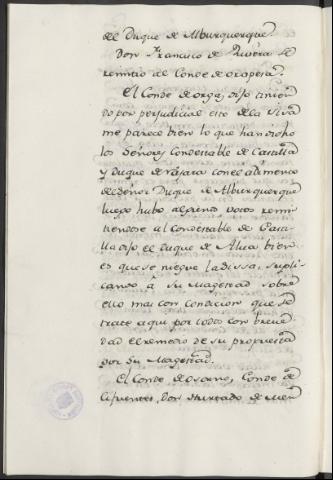 del Duque de Alburquerque.
Don Franco. de Rivera se
remitio al Conde de oropesa.
El Conde de orgaz, dijo tinien
do por perjudicial esto de la Sisa
me parece bien lo que han dicho
los Señores Condestable de Castilla
y Duque de Najara con el aditamento
del Señor Duque de Alburquerque
luego hubo algunos votos remi
tiendose al Condestable de Casti-
lla dijo el Duque de Alva bien
es que se niegue la dissa, supli
cando á su Magestad sobre
ello mas con condicion que se
trate aqui por todos con breve
dad el remedio de su propuesta
por Su Magestad.
El Conde de osorno, Conde de
Cifuentes, Don Hurtado de Men